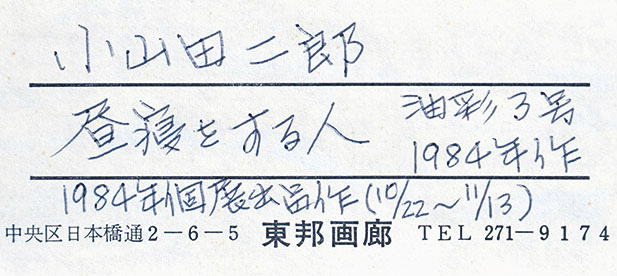 小山田二郎
昼寝をする人 油彩3号
1984年作
1984年個展出品作(10/22~11/13)
中央区日本橋通2-6-5 東邦画廊 TEL 271-9174